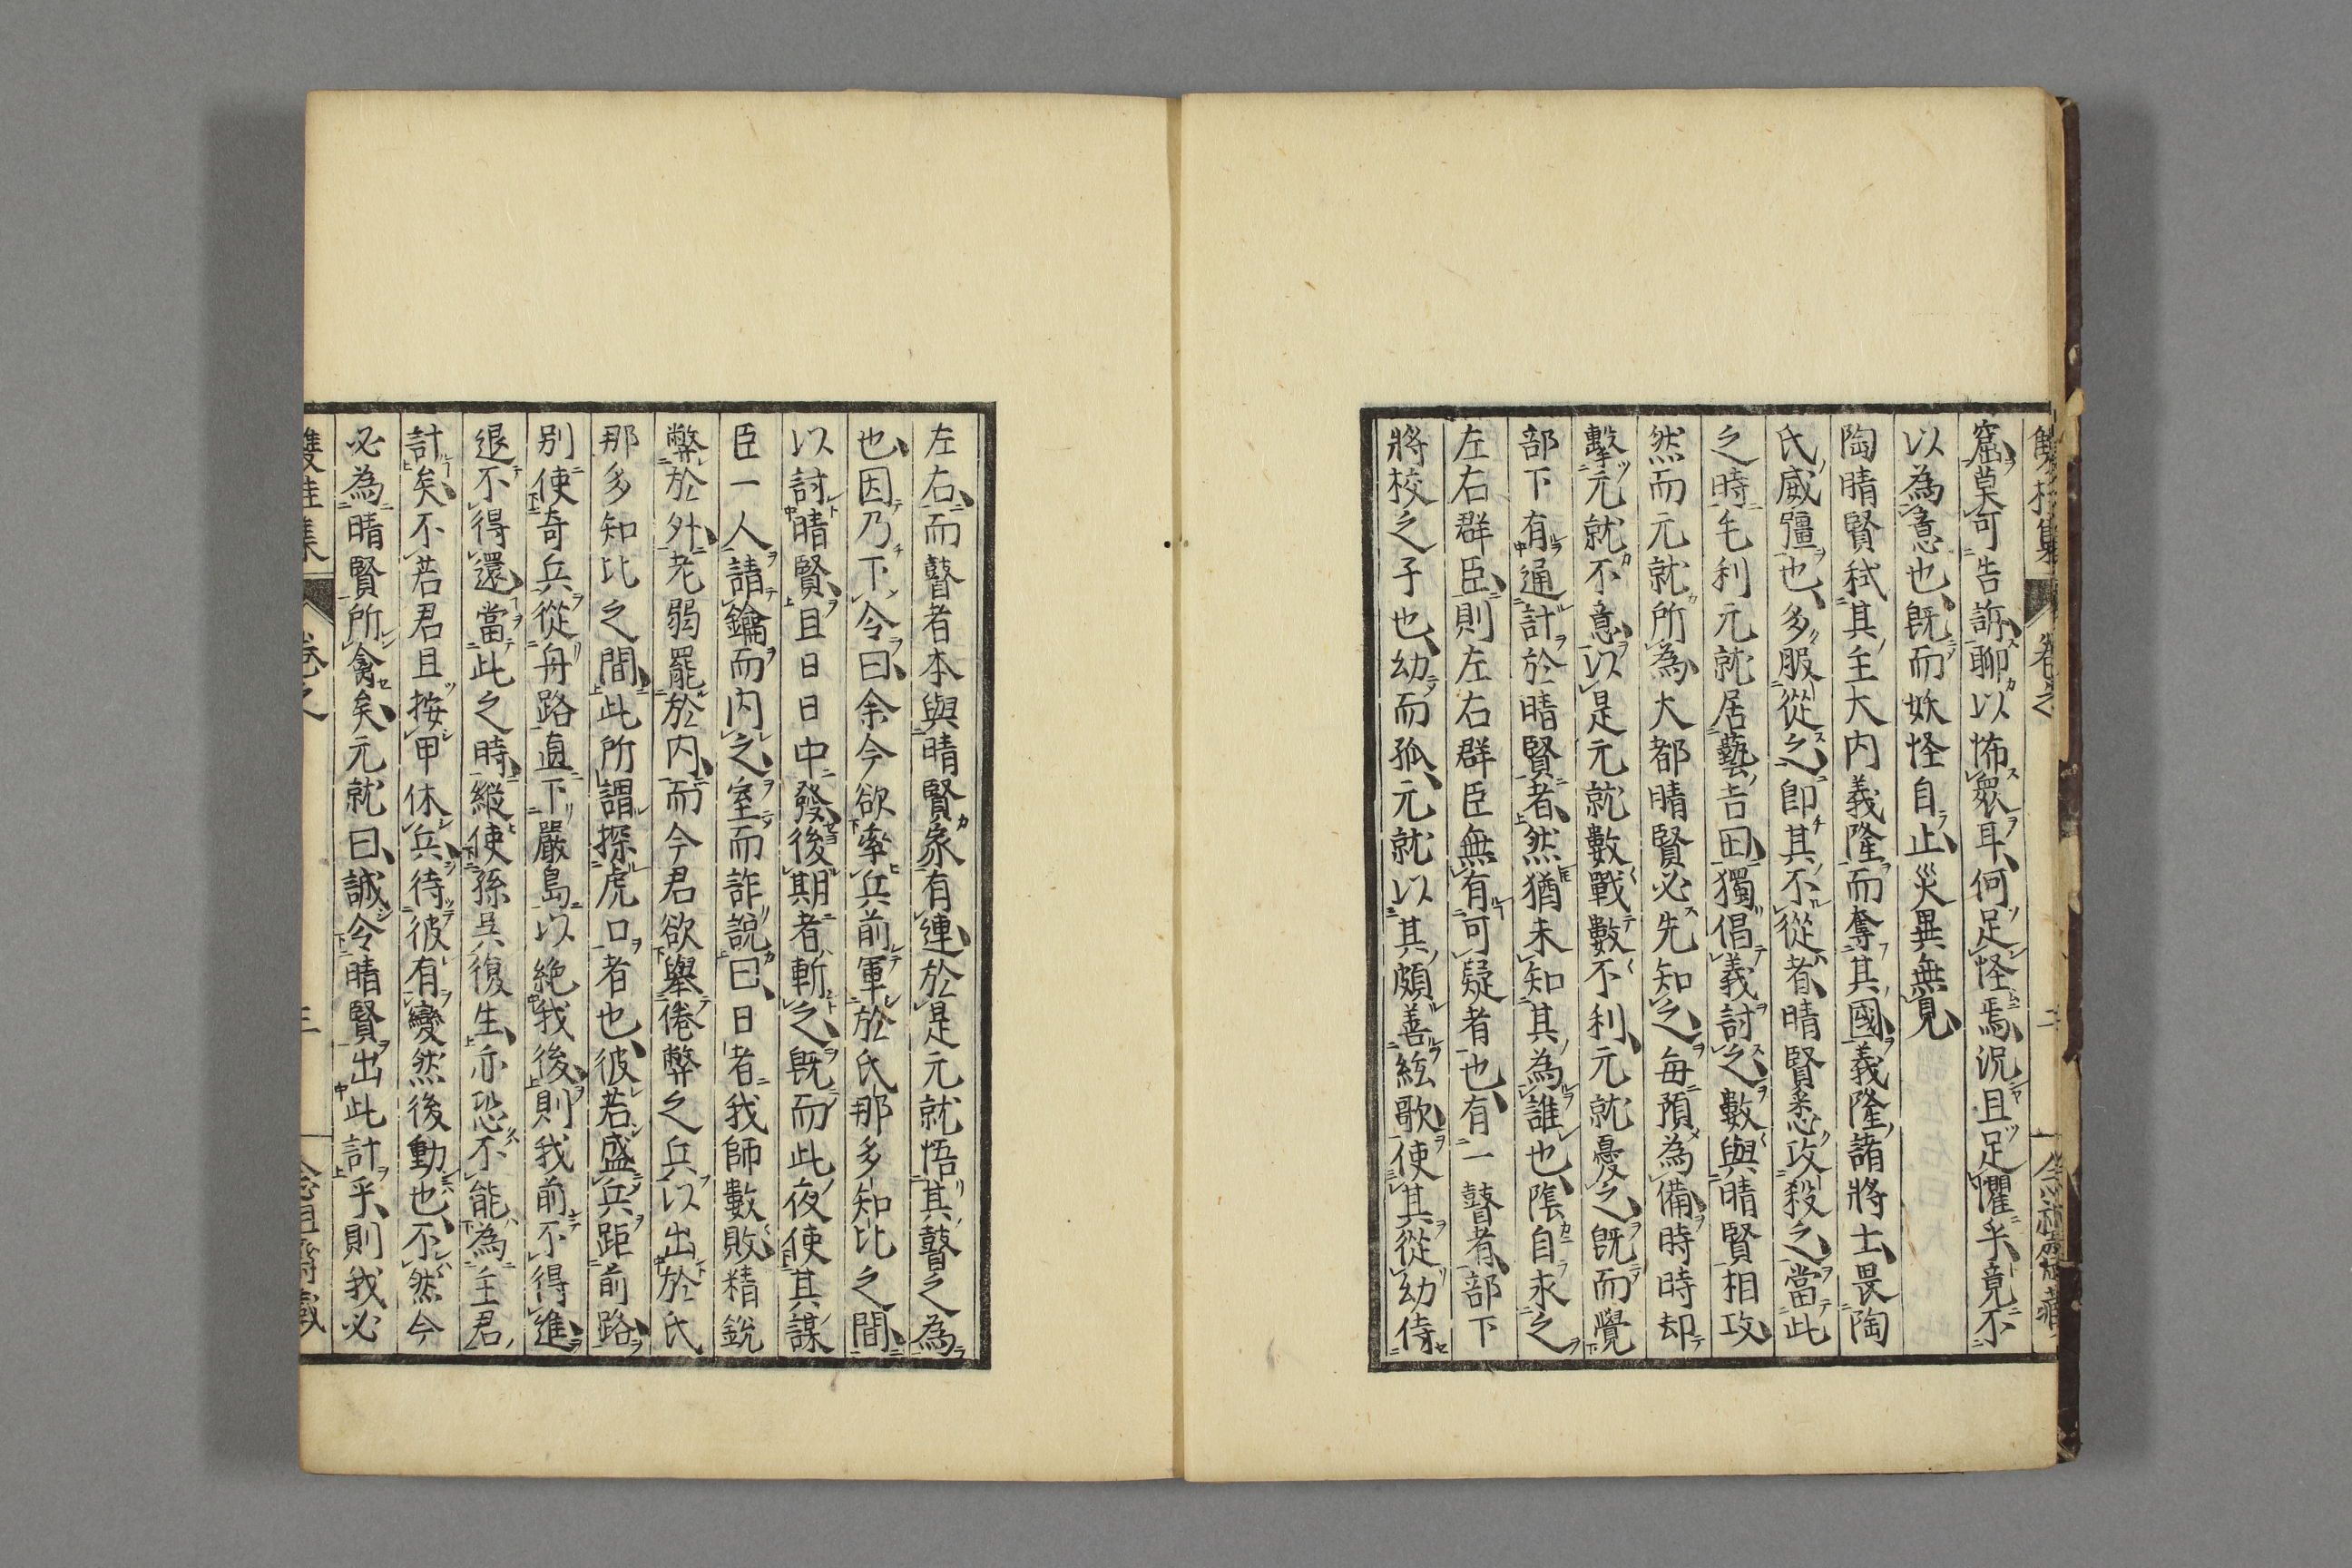 窟莫可告訴聊以怖衆耳何足怪焉況且足懼乎竟不
以為意也既而妖怪自止災異無見
陶晴賢弑其主大内義隆而奪其國義隆諸將士畏陶
氏威彊也多服從之即其不從者晴賢悉攻殺之當此
之時毛利元就居藝吉田獨倡義討之數與晴賢相攻
然而元就所為大都晴賢必先知之毎預為備時時却
擊元就不意以是元就數戰數不利元就憂之既而覺
部下有通計於晴賢者然猶未知其為誰也陰自求之
左右群臣則左右群臣無有可疑者也有一瞽者部下
將校之子也幼而孤元就以其頗善絃歌使其從幼侍
左右而瞽者本與晴賢家有連於是元就悟其瞽之為
也因乃下令曰余今欲率兵前軍於氏那多知比之間
以討晴賢且日日中發後期者斬之既而此夜使其謀
臣一人請鑰而内之室而詐説曰日者我師數敗精鋭
弊於外老弱罷於内而今君欲舉倦弊之兵以出於氏
那多知比之間此所謂探虎口者也彼若盛兵距前路
別使奇兵從舟路直下嚴島以絶我後則我前不得進
退不得還當此之時縱使孫呉復生亦恐不能為主君
計矣不若君且按甲休兵待彼有變然後動也不然今
必為晴賢所禽矣元就曰誠令晴賢出此計乎則我必
雙桂集 卷之 三